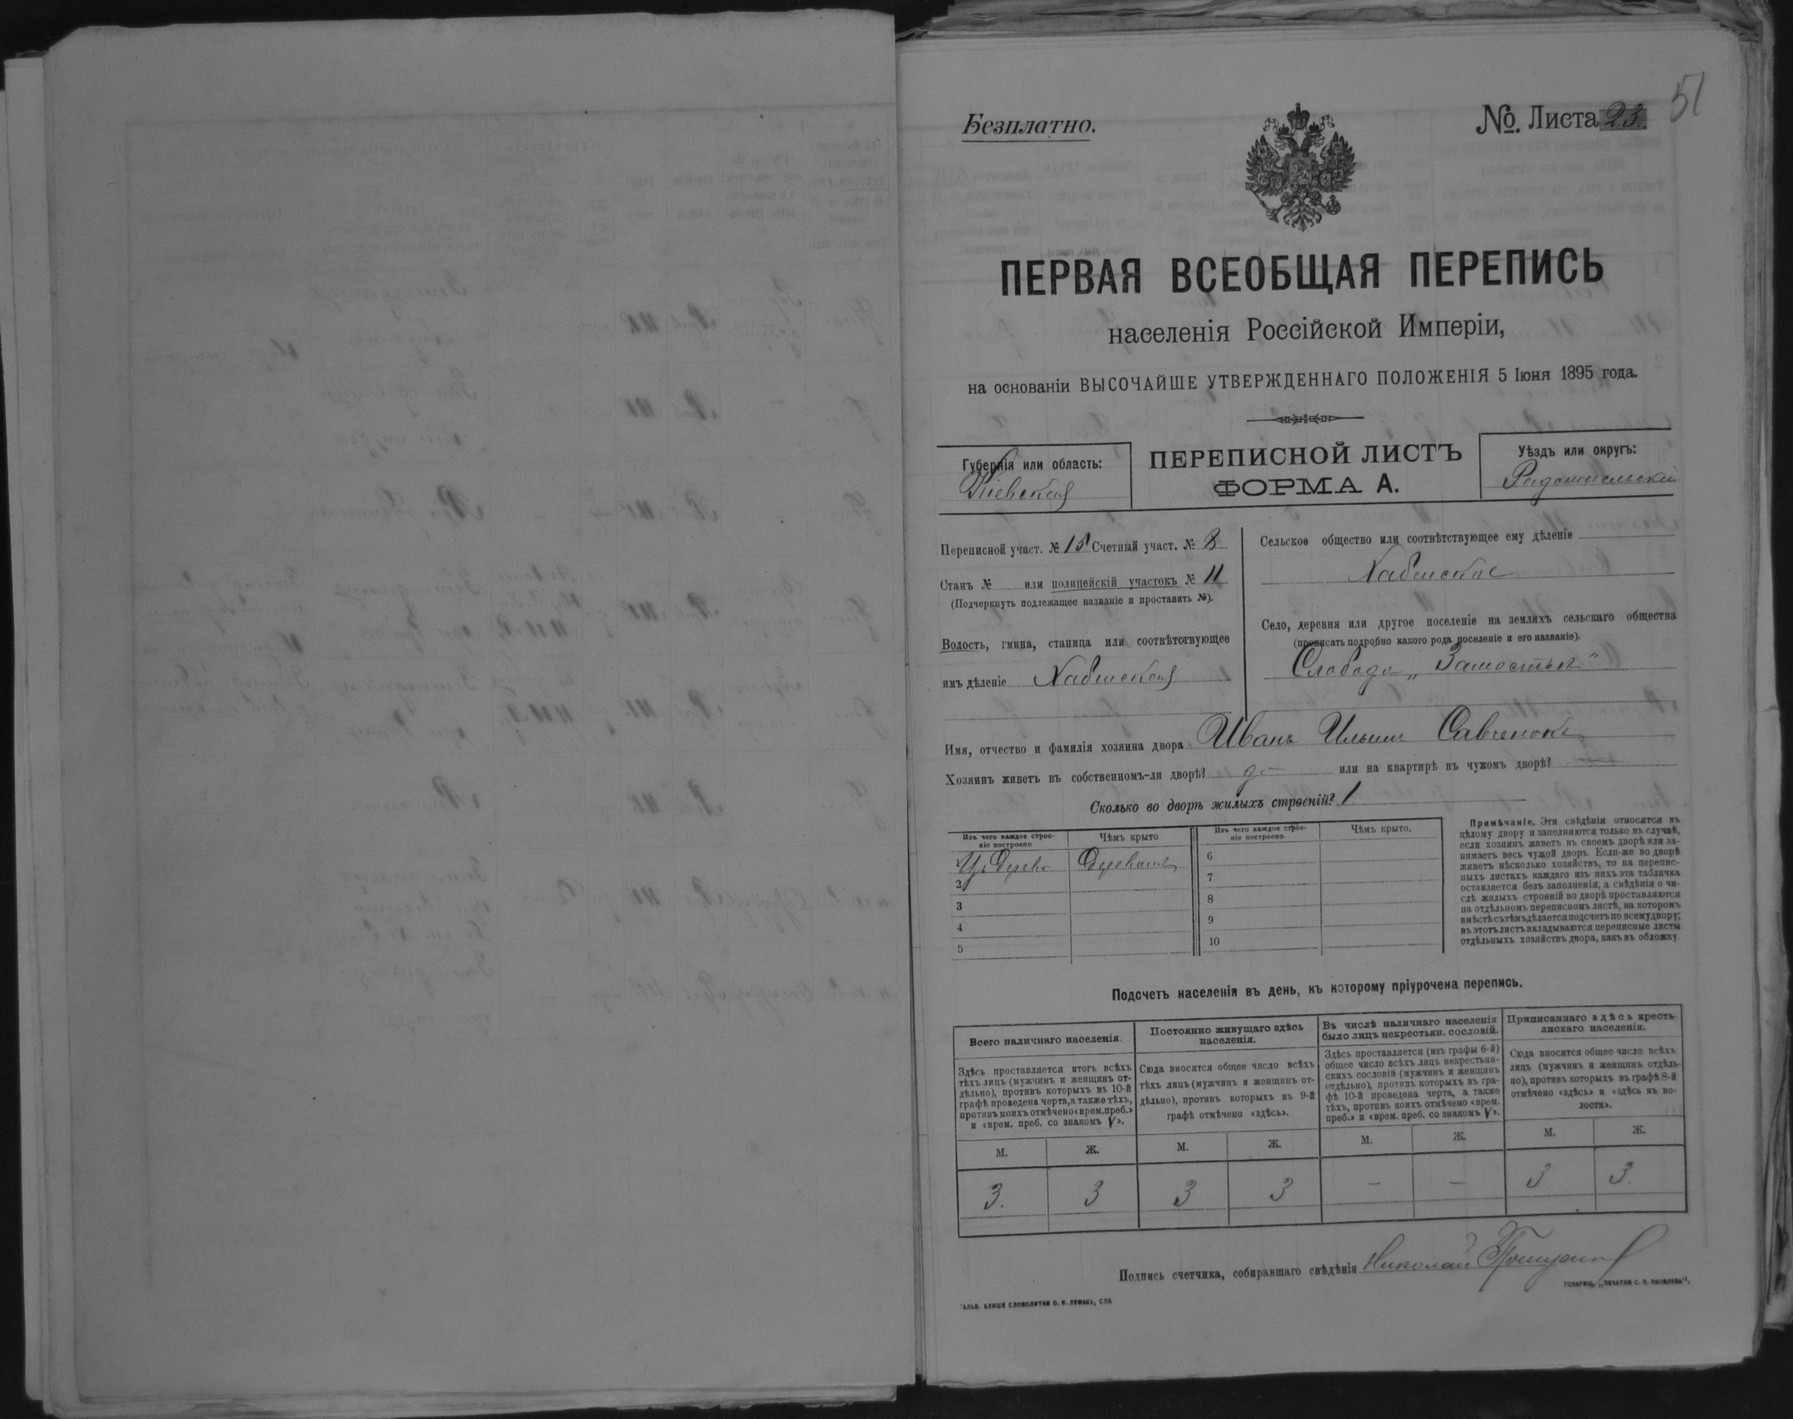 51
Безплатно.
№. Листа 23.
ПЕРВАЯ ВСЕОБЩАЯ ПЕРЕПИСЬ
населенія Россійской Имперіи,
на основаніи ВЫСОЧАЙШЕ УТВЕРЖДЕННАГО ПОЛОЖЕНІЯ 5 Іюня 1895 года.
Губернія или область:
Кіевская
ПЕРЕПИСНОЙ ЛИСТЪ
ФОРМА А.
Уѣздъ или округъ:
Радомысльскій
Переписной участ. № 15 Счетный участ. № 8
Станъ № или полицейскій участокъ № 11
(Подчеркнуть подлежащее названіе и проставить №).
Волость, гмина, станица или соотвѣтствующее
имъ дѣленіе Хабенская
Сельское общество или соотвѣтствующее ему дѣленіе
Хабенское
Село, деревня или другое поселеніе на земляхъ сельскаго общества
(прописать подробно какого рода поселеніе и его названіе).
Слобода „Замостье"
Имя, отчество и фамилія хозяина двора Иванъ Ильинъ Савченокъ
Хозяинъ живетъ въ собственномъ-ли дворѣ? да или на квартирѣ въ чужомъ дворѣ?
Сколько во дворѣ жилыхъ строеній? 1.
Изъ чего каждое строеніе построено
Чѣмъ крыто
Изъ чего каждое строеніе построено
Чѣмъ крыто.
Изъ дерева
2
3
4
5
6
7
8
9
10
Примѣчаніе. Эти свѣдѣнія относятся къ
цѣлому двору и заполняются только въ случаѣ,
если хозяинъ живетъ въ своемъ дворѣ или за-
нимаетъ весь чужой дворъ. Если-же во дворѣ
живетъ нѣсколько хозяйствъ, то на перепис-
ныхъ листахъ каждаго изъ нихъ эта табличка
оставляется безъ заполненія, а свѣдѣнія о чи-
слѣ жилыхъ строеній во дворѣ проставляются
на отдѣльномъ переписномъ листѣ, на которомъ
вмѣстѣ съ тѣмъ дѣлается подсчетъ по всему двору;
въ этотъ листъ вкладываются переписные листы
отдѣльныхъ хозяйствъ двора, какъ въ обложку.
Подсчетъ населенія въ день, къ которому пріурочена перепись.
Всего наличнаго населенія.
Здѣсь проставляется итогъ всѣхъ
тѣхъ лицъ (мужчинъ и женщинъ от-
дѣльно), противъ которыхъ въ 10-й
графѣ проведена черта, а также тѣхъ,
противъ коихъ отмѣчено «врем. преб.»
и «врем. преб. со знакомъ V».
Постоянно живущаго здѣсь
населенія.
Сюда вносится общее число всѣхъ
тѣхъ лицъ (мужчинъ и женщинъ от-
дѣльно), противъ которыхъ въ 9-й
графѣ отмѣчено «здѣсь».
Въ числѣ наличнаго населенія
было лицъ некрестьян. сословій.
Здѣсь проставляется (изъ графы 6-й)
общее число всѣхъ лицъ некрестьян-
скихъ сословій (мужчинъ и женщинъ
отдѣльно), противъ которыхъ въ гра-
фѣ 10-й проведена черта, а также
тѣхъ, противъ коихъ отмѣчено «врем.
преб.» и «врем. преб. со знакомъ V».
Приписаннаго здѣсь кресть-
янскаго населенія.
Сюда вносится общее число всѣхъ
лицъ (мужчинъ и женщинъ отдѣль-
но), противъ которыхъ въ графѣ 8-й
отмѣчено «здѣсь» и «здѣсь къ во-
лости».
М. Ж. М. Ж. М. Ж. М. Ж.
3. 3 3 3 — — 3 3.
Подпись счетчика, собиравшаго свѣдѣнія Николай
ТОВАРИЩ. „ПЕЧАТНЯ С. П. ЯКОВЛЕВА".
ГАЛЬВ. КЛИШЕ СЛОВОЛИТНИ О. И. ЛЕМАНЪ, СПБ